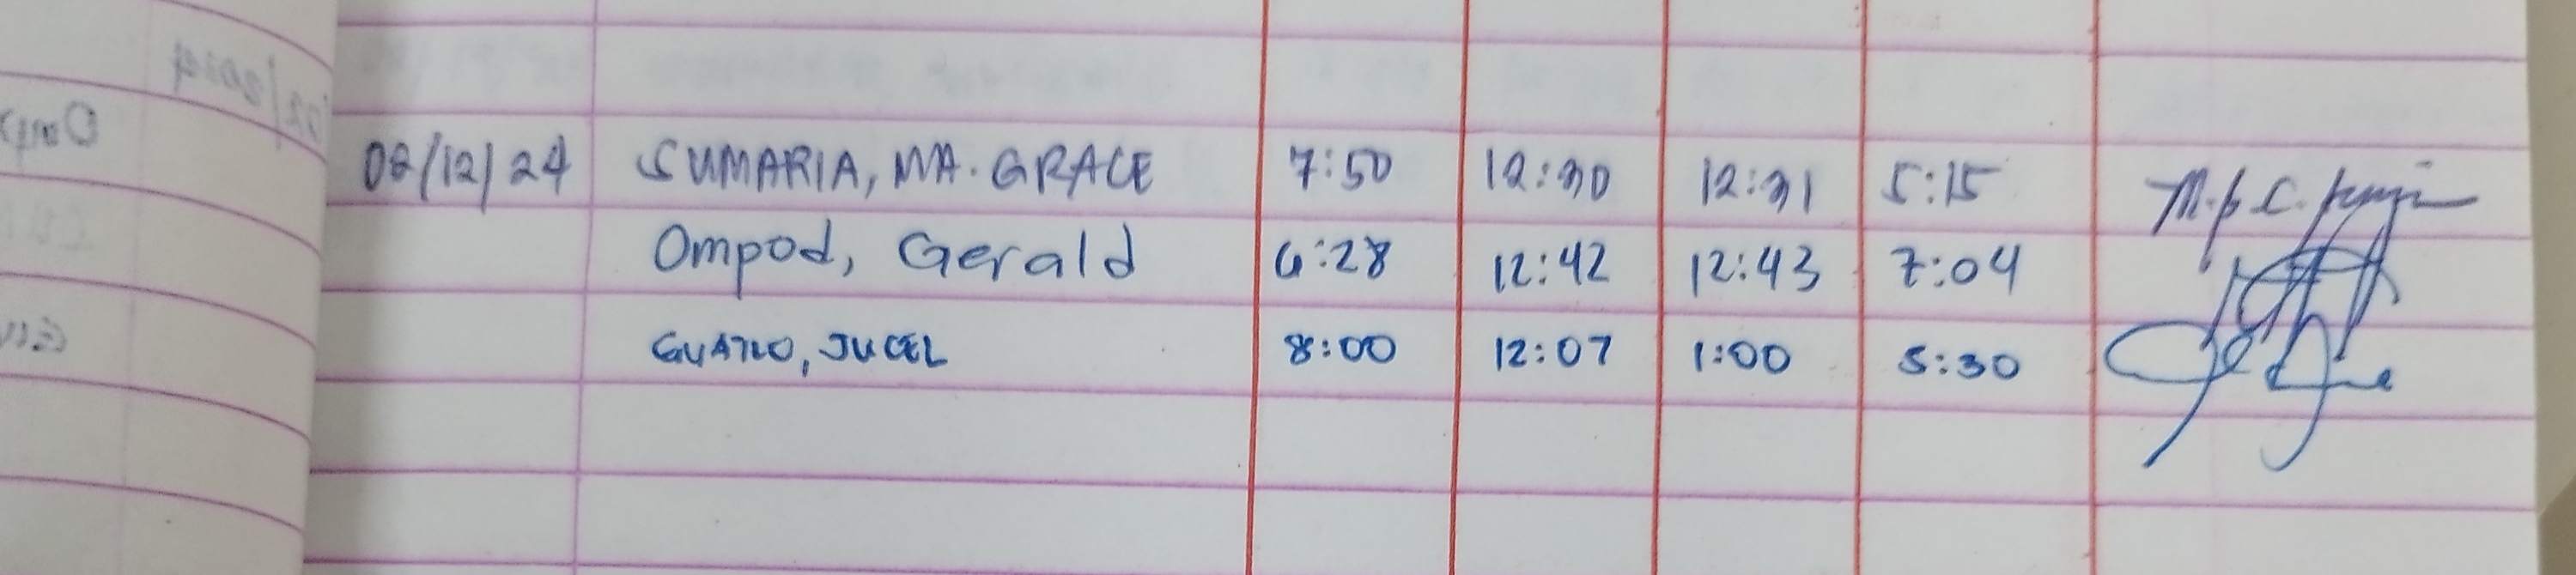 02/12/24 SUMARIA, MA. GRACE 7:50 12:30 12:31 5:15
Ompod, Gerald 6:28 12:42 12:43 7:04
GUATNO, JUCEL 8:00 12:07 1:00 5:30